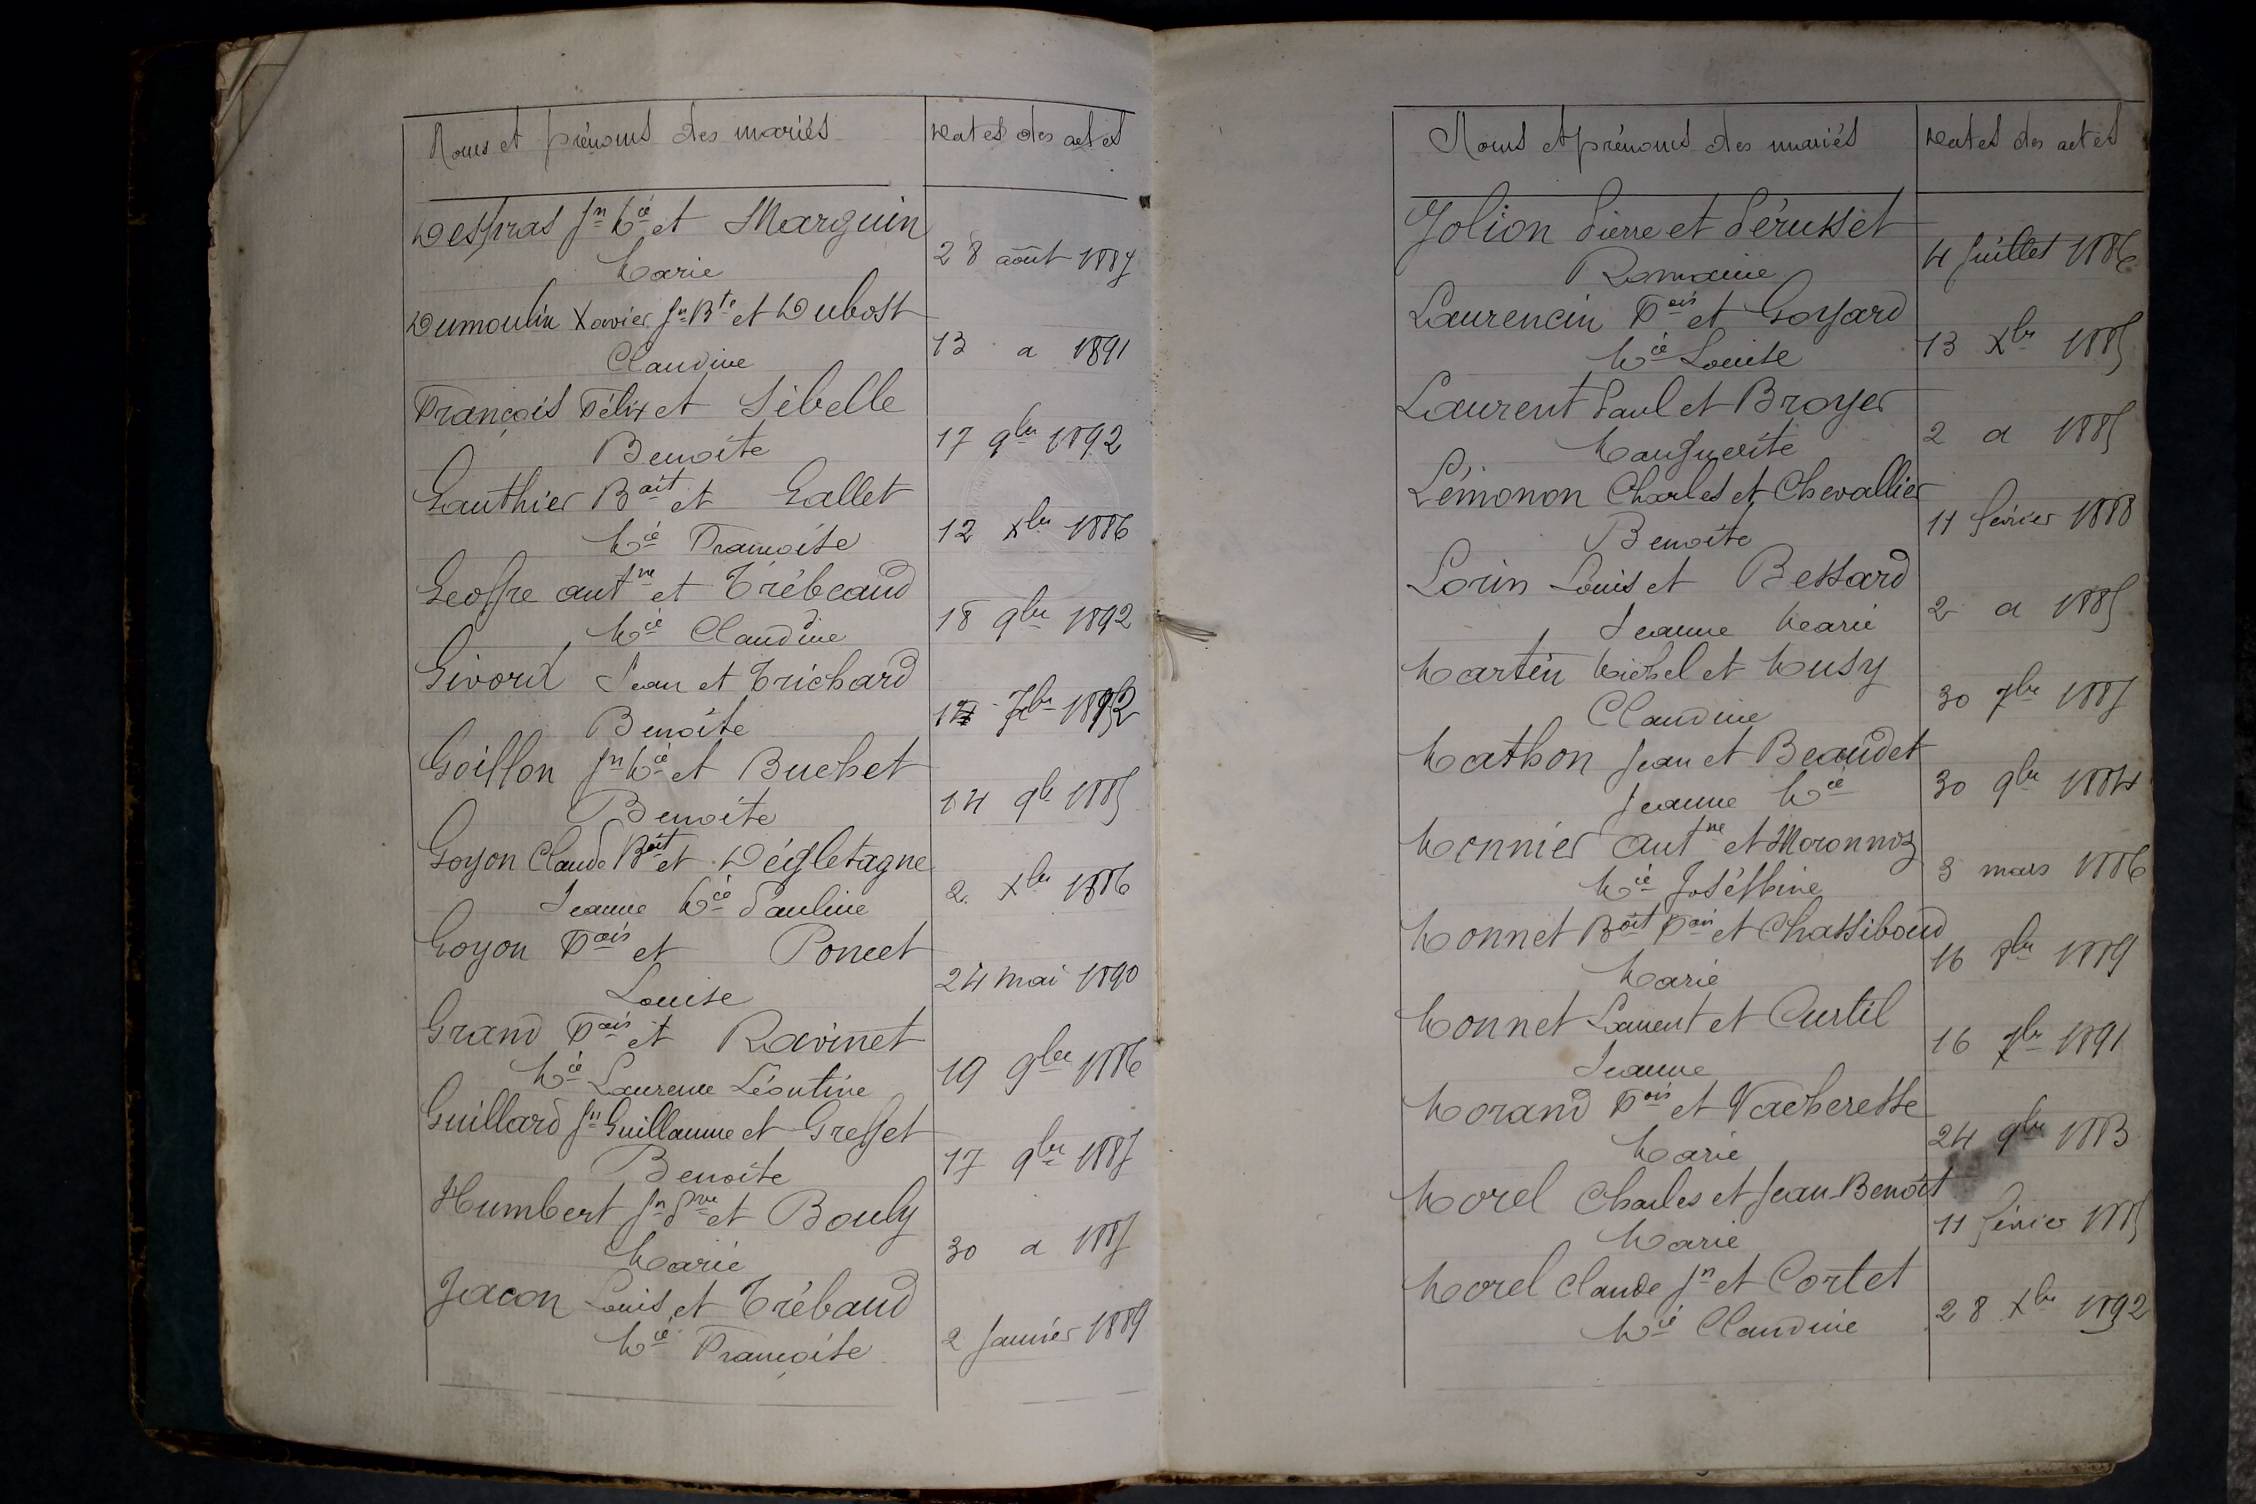 Noms et prénoms des mariés
Dates des actes
Despras Jn Mie et Marguin
Marie
28 août 1887
Dumoulin Xavier Jn Bte et Dubost
Claudine
13 a 1891
François Félix et Sibelle
Benoîte
17 9bre 1892
Gauthier Boit et Gallet
Mie Françoise
12 Xbre 1886
Geoffre antne et Trébeaud
Mie Claudine
18 9bre 1892
Givord Jean et Trichard
Benoîte
7bre 1892
Goillon Jn Mie et Buchet
Benoîte
14 9b 1885
Goyon Claude Boit et Dégletagne
Jeanne Mie Pauline
2 Xbre 1886
Goyon Fois et Poncet
Louise
24 mai 1890
Grand Fois et Ravinet
Mie Laurence Léontine
19 9bre 1886
Guillard Jn Guillaume et Greffet
Benoîte
17 9bre 1887
Humbert Jn Pre et Bouly
Marie
30 a 1887
Jacon Louis et Trébaud
Mie Françoise
2 Janvier 1889
Noms et prénoms des mariés
Dates des actes
Jolion Pierre et Pérusset
Romaine
4 Juillet 1886
Laurencin Fois et Goyard
Mie Louise
13 Xbr 1885
Laurent Paul et Broyer
Marguerite
2 a 1885
Lémonon Charles et Chevallier
Benoîte
11 février 1888
Lorin Louis et Bessard
Jeanne Marie
2 a 1885
Martin Michel et Musy
Claudine
30 7bre 1887
Mathon Jean et Beaudet
Jeanne Mie
30 9bre 1884
Monnier antne et Moronnoz
Mie Joséphine
3 mars 1886
Monnet Boit Fois et Chassiboud
Marie
16 7bre 1889
Monnet Laurent et Curtil
Jeanne
16 7br 1891
Morand Fois et Vacheresse
Marie
24 9bre 1883
Morel Charles et Jean-Benoît
Marie
11 février 1885
Morel Claude Jn et Cortet
Mie Claudine
28 Xbre 1892